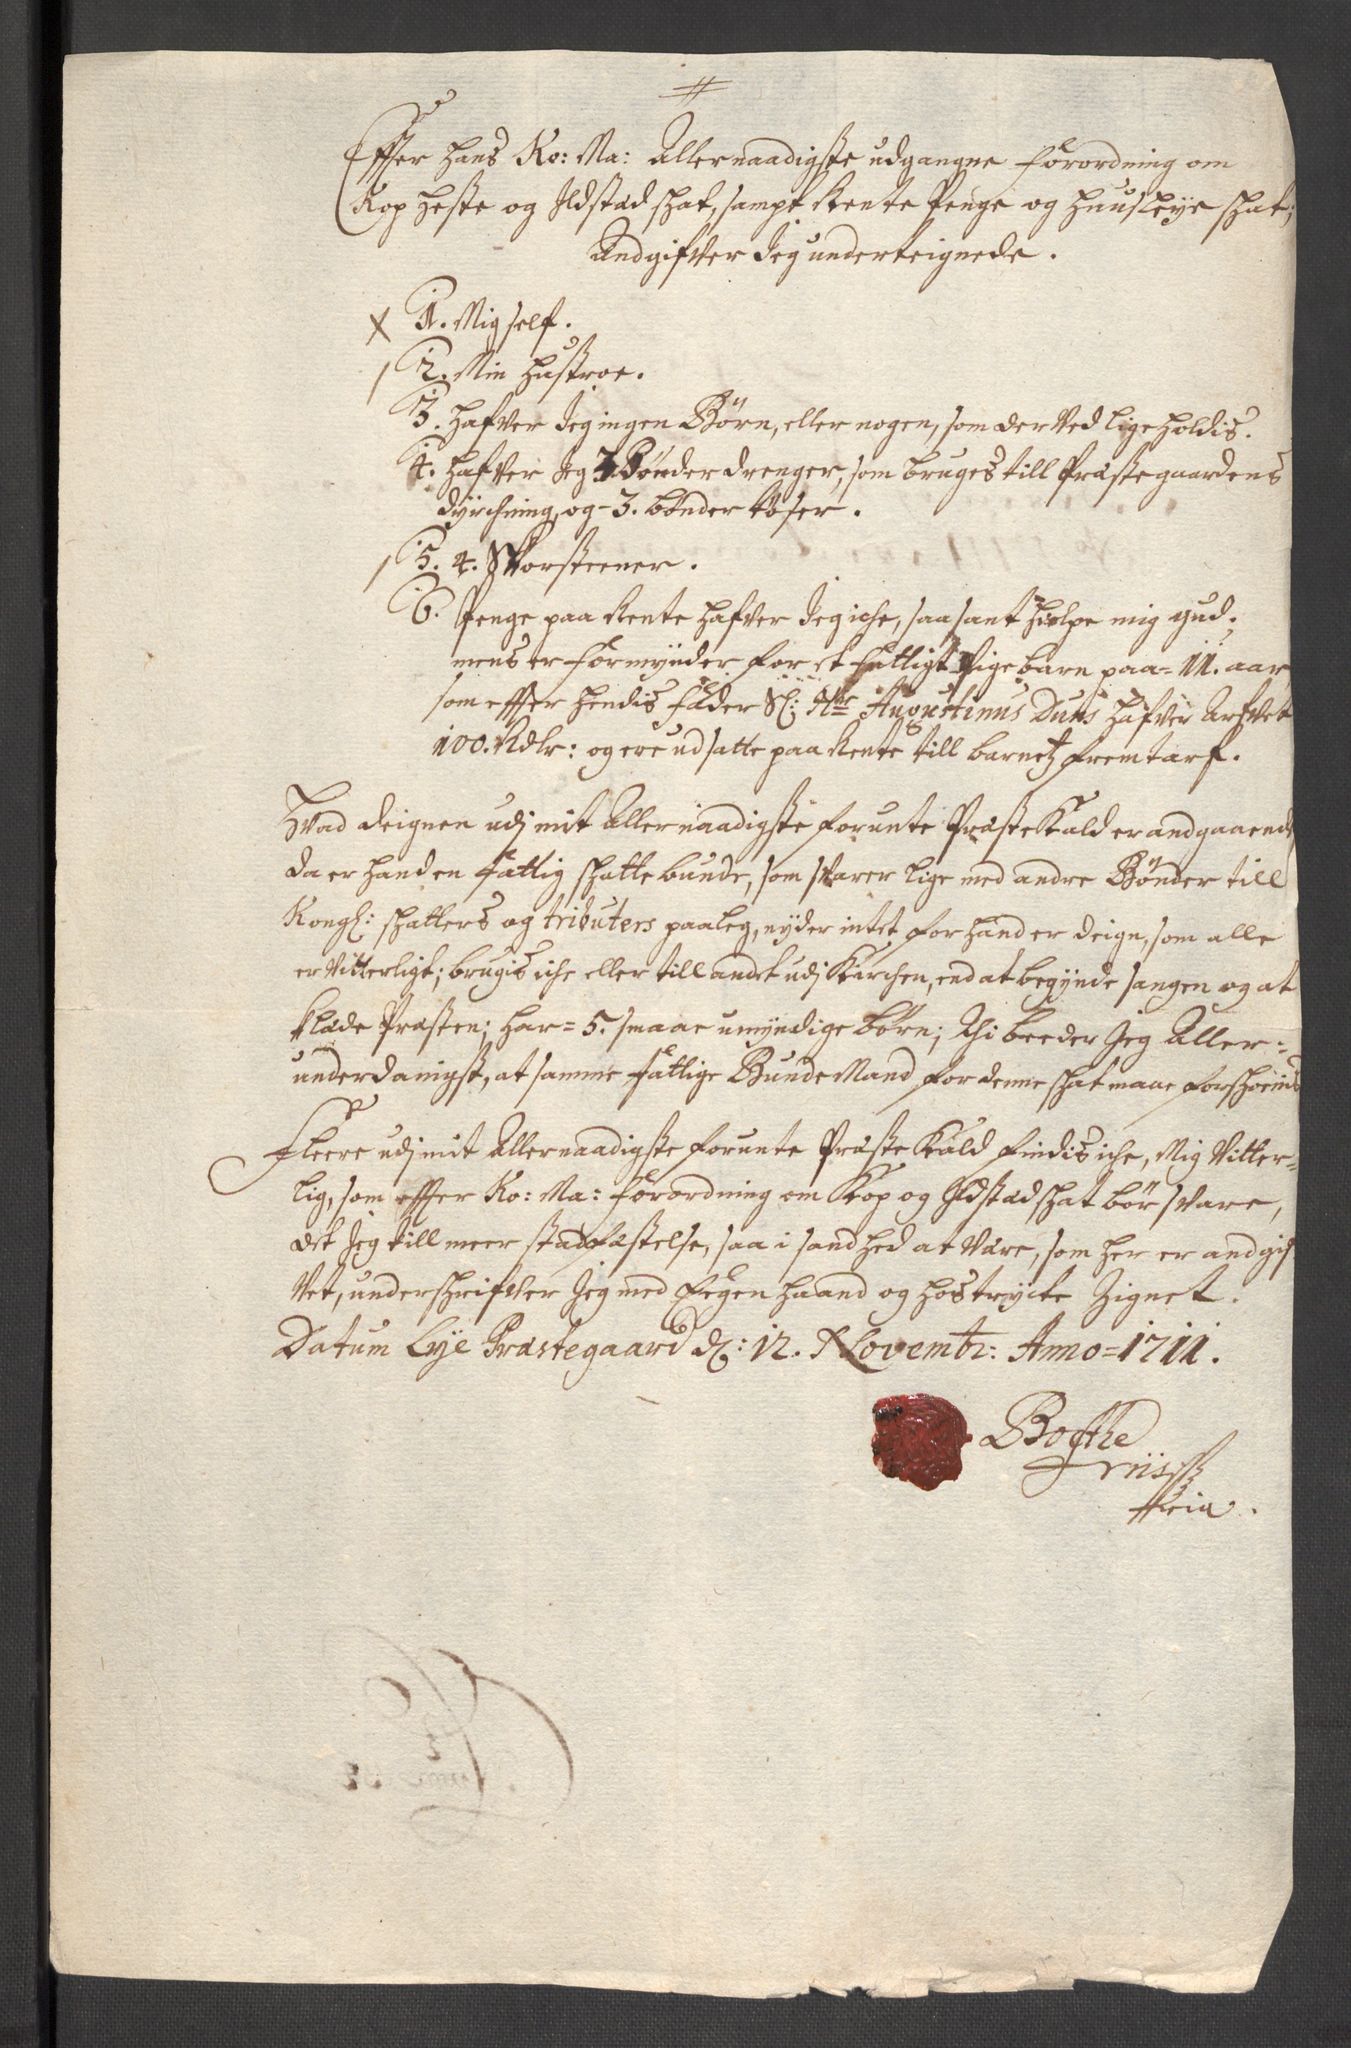 Effter Hans Ko: Ma: Allernaadigste udgangne forordning om
Kop Heste og Ildstad schat, sampt Rente Penge og huusleye schat;
Andgifver Jeg underteignede.
1. Mig self.
2. Min hustroe.
3. Hafver Jeg ingen Børn, eller nogen, som der ved lige holdis.
4. Hafver Jeg 3 Bønder drenger, som bruges till Præstegaardens
dyrchning, og 3. bønder tøser.
5. 4. Skorsteener.
6. Penge paa Rente hafver Jeg iche, saa sant hielpe mig gud;
mens er formynder for et fattigt Pige barn paa 11. aar,
som effter hendis Fader Sl: Hr Augustinus Duus hafver Arfvet
100. Rdlr: og ere udsatte paa Rente till barnetz fremtarf.
Hvad deignen udj mit Allernaadigste forunte Præste Kald er andgaaende,
da er hand en fattig schatte bunde, som svarer lige med andre Bønder till
Kongl: schatters og tributers paaleg, nyder intet for hand er deign, som alle
er vitterligt; brugis iche eller till andet udj Kirchen, end at begynde sangen og at
klæde Præsten; har 5. smaae umyndige børn; Thi beeder Jeg Aller:
underdanigst, at samme fattige Bunde Mand for denne schat maae forschoenis
Fleere udj mit Allernaadigste forunte Præste Kald findis iche, Mig Vitter=
lig, som effter Ko: Ma: forordning om Kop og Ildstad schat bør svare,
det Jeg till meer stadfæstelse, saa i sandhed at være, som her er andgif
vet, underschrifver Jeg med Eegen haand og hostrycte Zignet.
Datum Lye Præstegaard d: 12. Novembr: Anno=1711.
Boethe